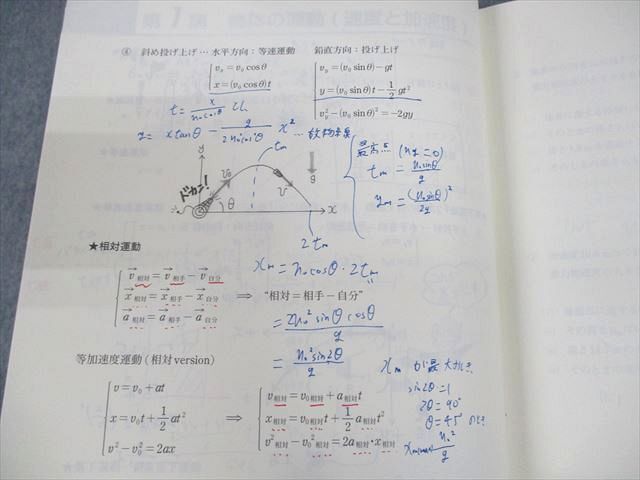 ④ 斜め投げ上げ…水平方向：等速運動　鉛直方向：投げ上げ
v_x = v_0 cosθ
x = (v_0 cosθ)t
v_y = (v_0 sinθ) − gt
y = (v_0 sinθ)t − 1/2 gt²
v_y² − (v_0 sinθ)² = −2gy
t = x/(v_0 cosθ) として
y = x tanθ − g/(2v_0² cos²θ) x² … 放物線
y
t_m
v_0
v
g
ドカン!
θ
x
2t_m
最高点 (v_y = 0)
t_m = v_0 sinθ/g
y_m = (v_0 sinθ)²/2g
★相対運動
x_m = v_0 cosθ・2t_m
v相対 = v相手 − v自分
x相対 = x相手 − x自分
a相対 = a相手 − a自分
⇒ “相対＝相手−自分”
= 2v_0² sinθ cosθ/g
= v_0² sin2θ/g
等加速度運動 (相対 version)
v = v_0 + at
x = v_0t + 1/2 at²
v² − v_0² = 2ax
⇒
v相対 = v_0相対 + a相対t
x相対 = v_0相対t + 1/2 a相対t²
v²相対 − v_0²相対 = 2a相対・x相対
x_m が最大のとき
sin2θ = 1
2θ = 90°
θ = 45° のとき
v_0²/g